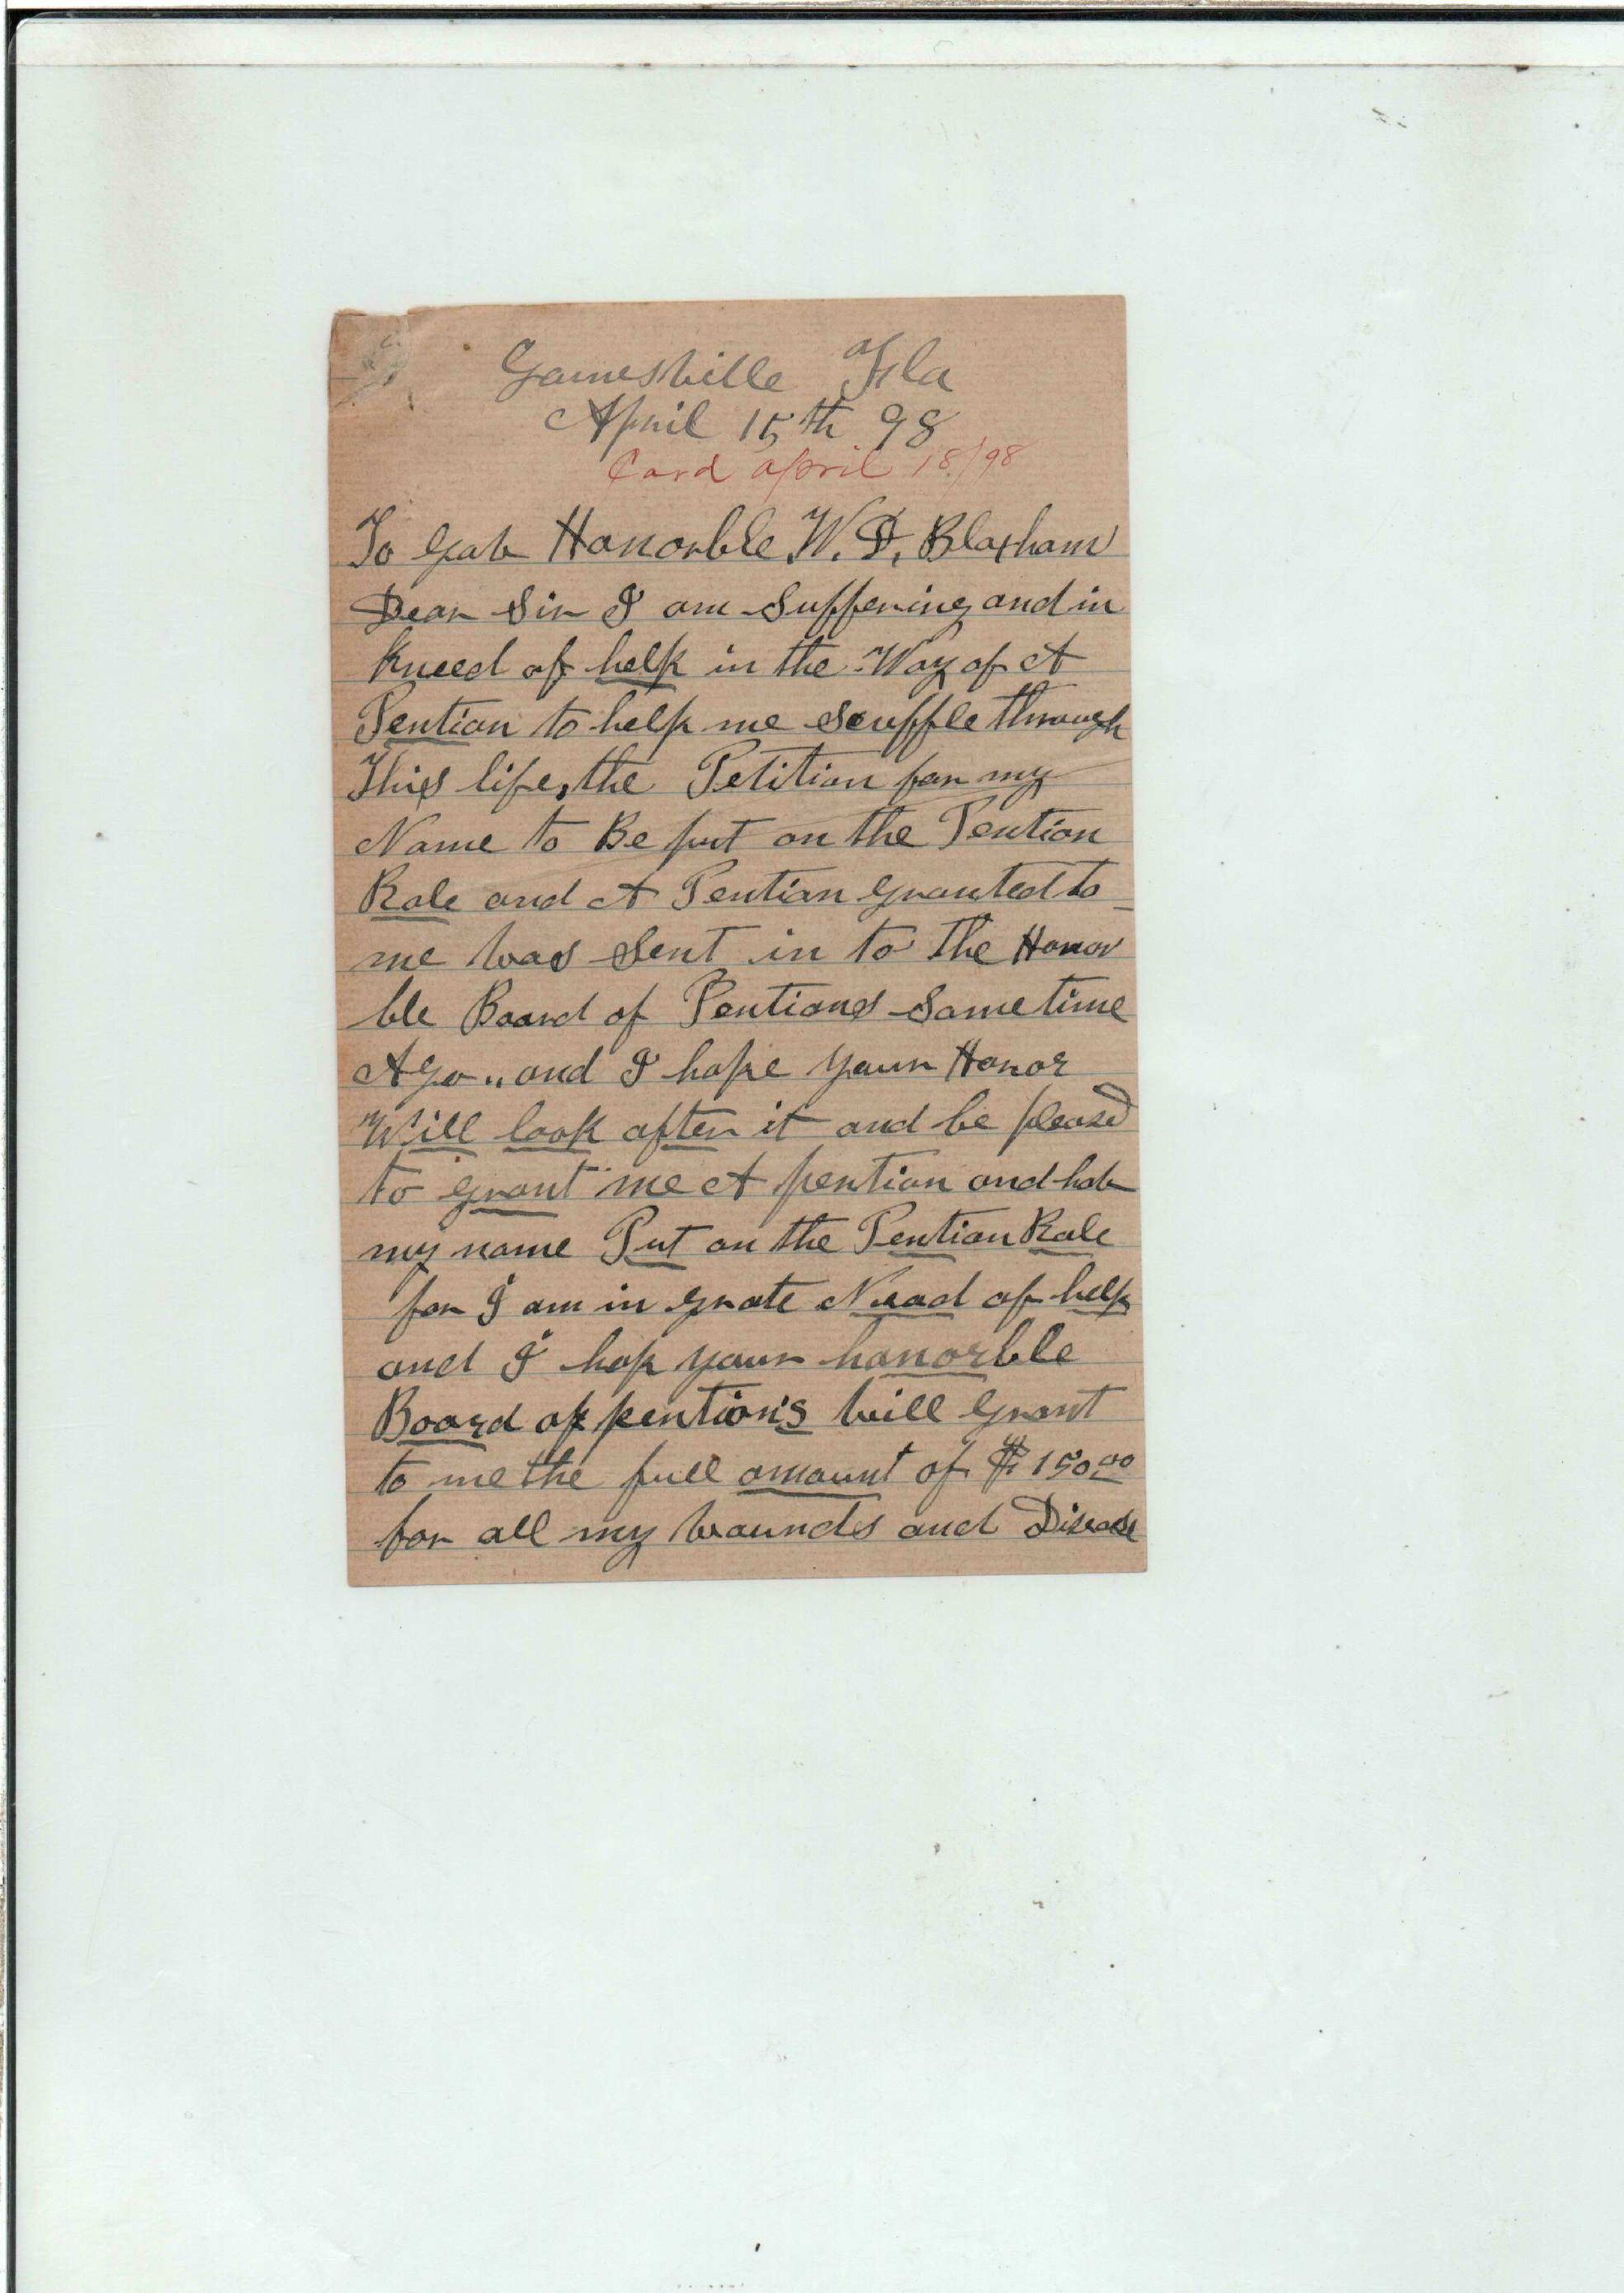 Gainesville Fla
April 15th 98
Card april 18/98
To Gov Honorble W. D. Bloxham
Dear Sir I am suffering and in
Kneed of help in the Way of A
Pention to help me scuffle through
This life, the Petition for my
Name to Be put on the Pention
Role and A Pention Granted to
me was Sent in to The Honor
ble Board of Pentions Some time
A Go .. and I hope your Honor
Will look after it and be pleasd
to grant me A pention and hav
my name Put on the Pention Role
for I am in grate Nead of help
and I hop your honorble
Board of pention's will Grant
to me the full amount of $150.00
for all my wounds and Disease